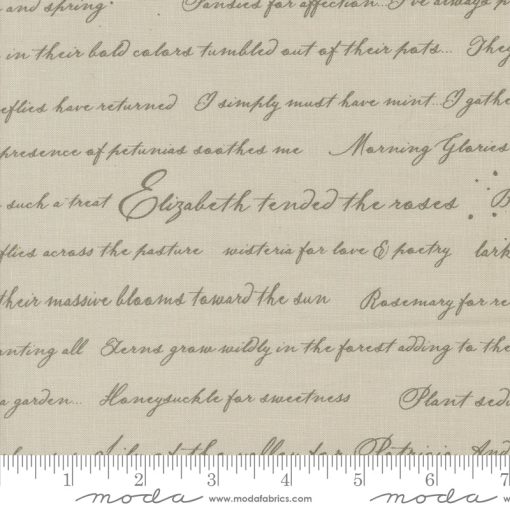 and spring. Pansies for affection... I've always p
in their bold colors tumbled out of their pots... They
eflies have returned I simply must have mint... I gathe
presence of petunias soothes me Morning Glories
such a treat Elizabeth tended the roses B
flies across the pasture wisteria for love & poetry lark
their massive blooms toward the sun Rosemary for re
anting all Ferns grow wildly in the forest adding to the
a garden... Honeysuckle for sweetness Plant sedu
valley for Patricia And
1 2 3 4 5 6 7
moda www.modafabrics.com moda www.modafabrics.com